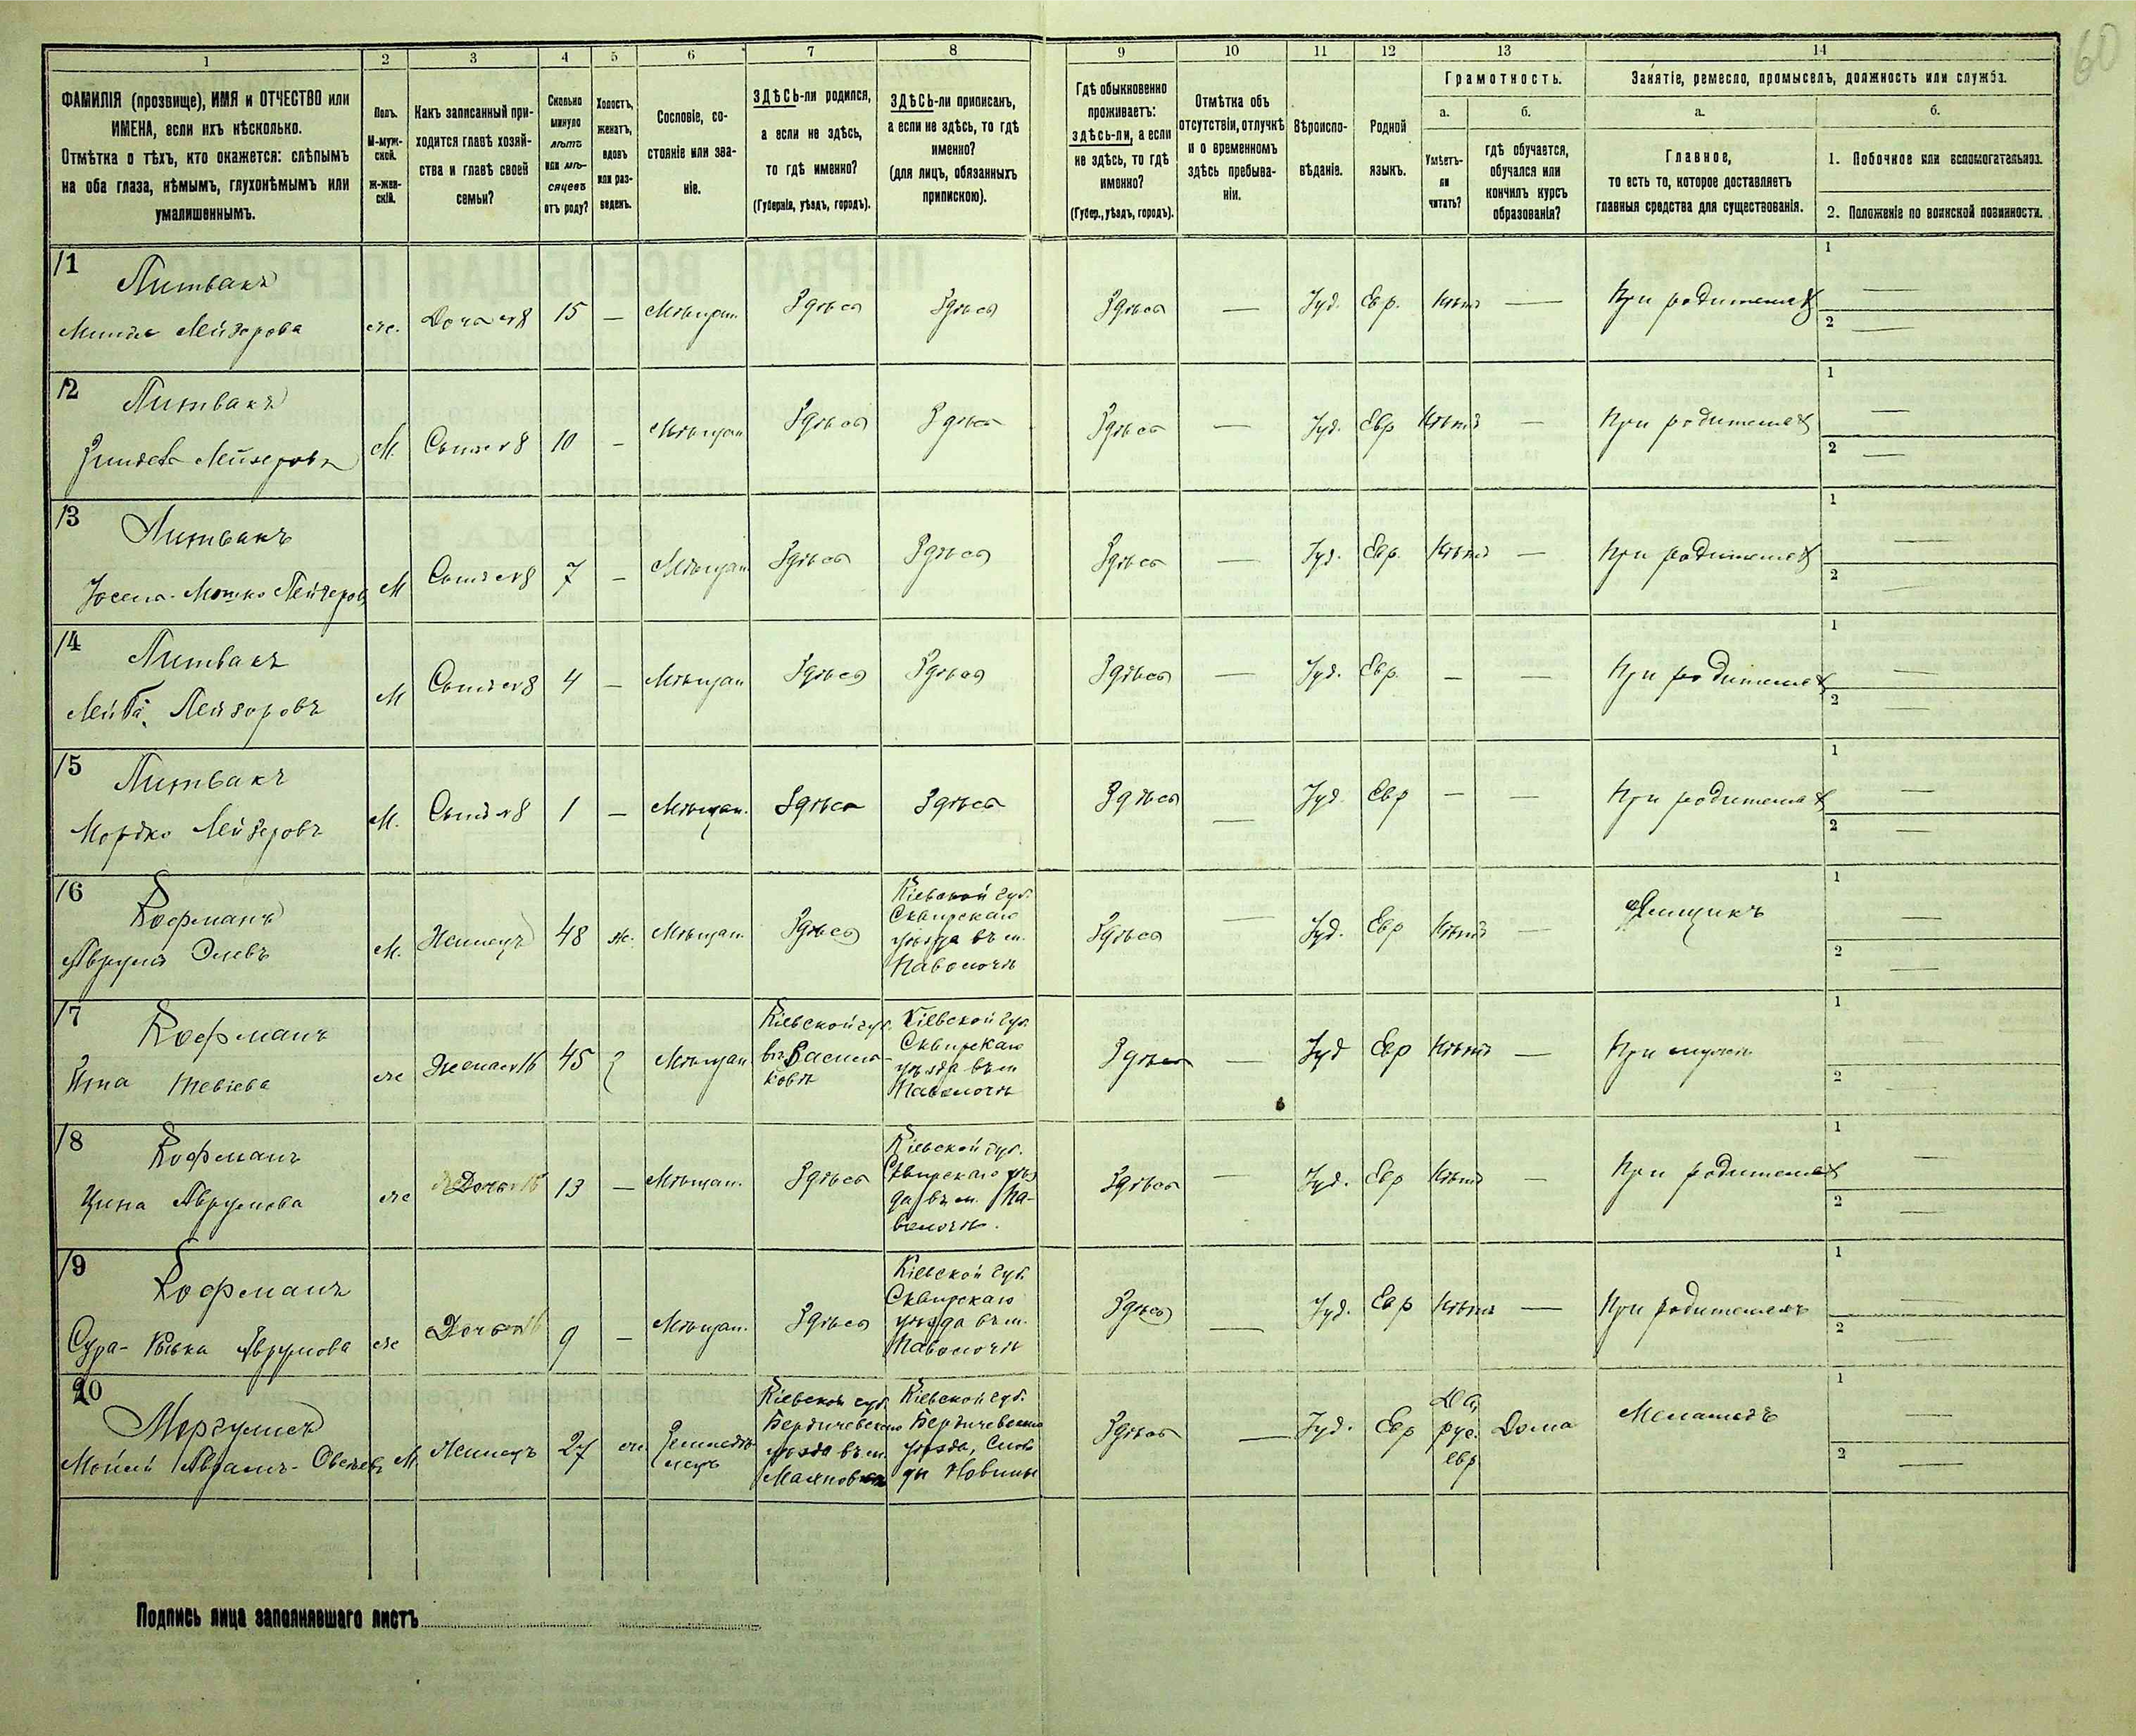 60
1 2 3 4 5 6 7 8 9 10 11 12 13 14
ФАМИЛІЯ (прозвище), ИМЯ и ОТЧЕСТВО или
ИМЕНА, если ихъ нѣсколько.
Отмѣтка о тѣхъ, кто окажется: слѣпымъ
на оба глаза, нѣмымъ, глухонѣмымъ или
умалишеннымъ.
Полъ.
М-муж-
ской.
Ж-жен-
скій.
Какъ записанный при-
ходится главѣ хозяй-
ства и главѣ своей
семьи?
Сколько
минуло
лѣтъ
или мѣ-
сяцевъ
отъ роду?
Холостъ,
женатъ,
вдовъ
или раз-
веденъ.
Сословіе, со-
стояніе или зва-
ніе.
ЗДѢСЬ-ли родился,
а если не здѣсь,
то гдѣ именно?
(Губернія, уѣздъ, городъ).
ЗДѢСЬ-ли приписанъ,
а если не здѣсь, то гдѣ
именно?
(для лицъ, обязанныхъ
припискою).
Гдѣ обыкновенно
проживаетъ:
здѣсь-ли, а если
не здѣсь, то гдѣ
именно?
(Губер., уѣздъ, городъ).
Отмѣтка объ
отсутствіи, отлучкѣ
и о временномъ
здѣсь пребыва-
ніи.
Вѣроиспо-
вѣданіе.
Родной
языкъ.
Грамотность.
а.
Умѣетъ-
ли
читать?
б.
гдѣ обучается,
обучался или
кончилъ курсъ
образованія?
Занятіе, ремесло, промыселъ, должность или служба.
а.
Главное,
то есть то, которое доставляетъ
главныя средства для существованія.
б.
1. Побочное или вспомогательное.
2. Положеніе по воинской повинности.
11
Литвакъ
Лейзерова
же. Дочь 8 15 — Мѣщан. Здѣсь Здѣсь Здѣсь — Іуд. Евр. Нѣтъ — При родителях
1 —
2 —
12
Литвакъ
М. Сынъ 8 10 — Мѣщан Здѣсь Здѣсь Здѣсь — Іуд. Евр Нѣтъ — При родителях
1 —
2 —
13
Литвакъ
Мошко Лейзеров
М Сынъ 8 7 — Мѣщан Здѣсь Здѣсь Здѣсь — Іуд. Евр. Нѣтъ — При родителях
1 —
2 —
14
Литвакъ
Лейба Лейзоровъ
М Сынъ 8 4 — Мѣщан Здѣсь Здѣсь Здѣсь — Іуд. Евр. — — При родителях
1 —
2 —
15
Литвакъ
Мордко Лейзеровъ
М. Сынъ 8 1 — Мѣщан. Здѣсь Здѣсь Здѣсь — Іуд Евр — — При родителях
1 —
2 —
16
Кофманъ
Аврумъ
М. Жилецъ 48 ж. Мѣщан. Здѣсь
Кіевской губ.
Сквирскаго
уѣзда въ м.
Паволочи
Здѣсь — Іуд. Евр Нѣтъ —
1 —
2 —
17
Кофманъ
Тевіева
же 45 Мѣщан
Кіевской губ.
въ Василь-
ковѣ
Кіевской губ.
Сквирскаго
уѣзда въ м
Паволочи
Здѣсь — Іуд Евр Нѣтъ — При мужѣ
1 —
2 —
18
Кофманъ
Аврумова
же Дочь 16 13 — Мѣщан. Здѣсь
Кіевской губ.
Сквирскаго уѣз
да въ м. Па-
волочи.
Здѣсь — Іуд. Евр Нѣтъ — При родителях
1 —
2 —
19
Кофманъ
Сура- Аврумова
же Дочь 16 9 — Мѣщан. Здѣсь
Кіевской губ.
Сквирскаго
уѣзда въ м.
Паволочи
Здѣсь — Іуд. Евр Нѣтъ — При родителяхъ
1 —
2 —
20
Аврамъ-
М. Жилецъ 27 же
Кіевской губ.
Бердичевскаго
уѣзда въ м.
Кіевской губ.
Бердичевскаго
уѣзда,
Новины
Здѣсь — Іуд. Евр
Да,
рус.
евр
Дома Меламедъ
1 —
2 —
Подпись лица заполнявшаго листъ